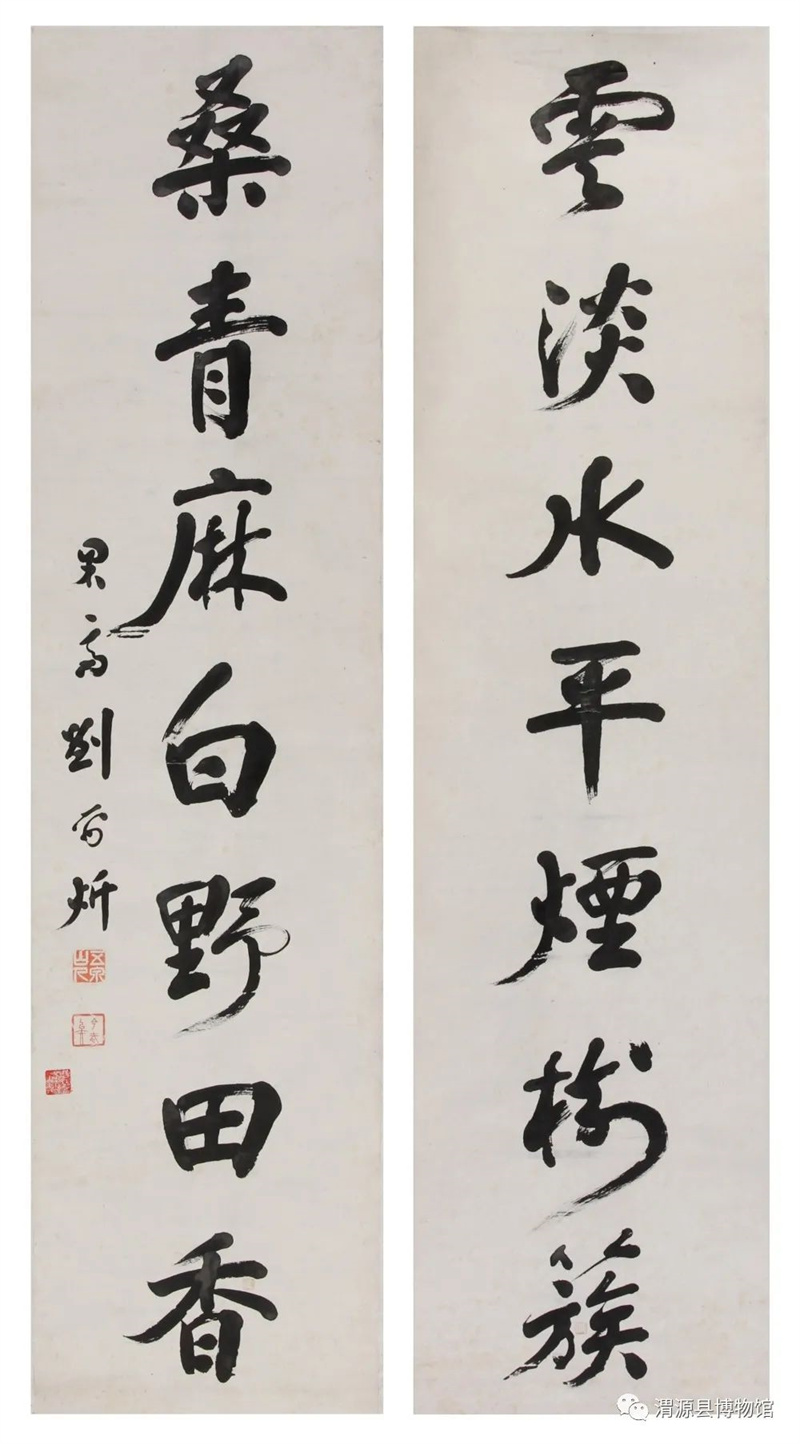 雲淡水平煙樹簇
桑青麻白野田香
果齋劉爾炘
渭源县博物馆